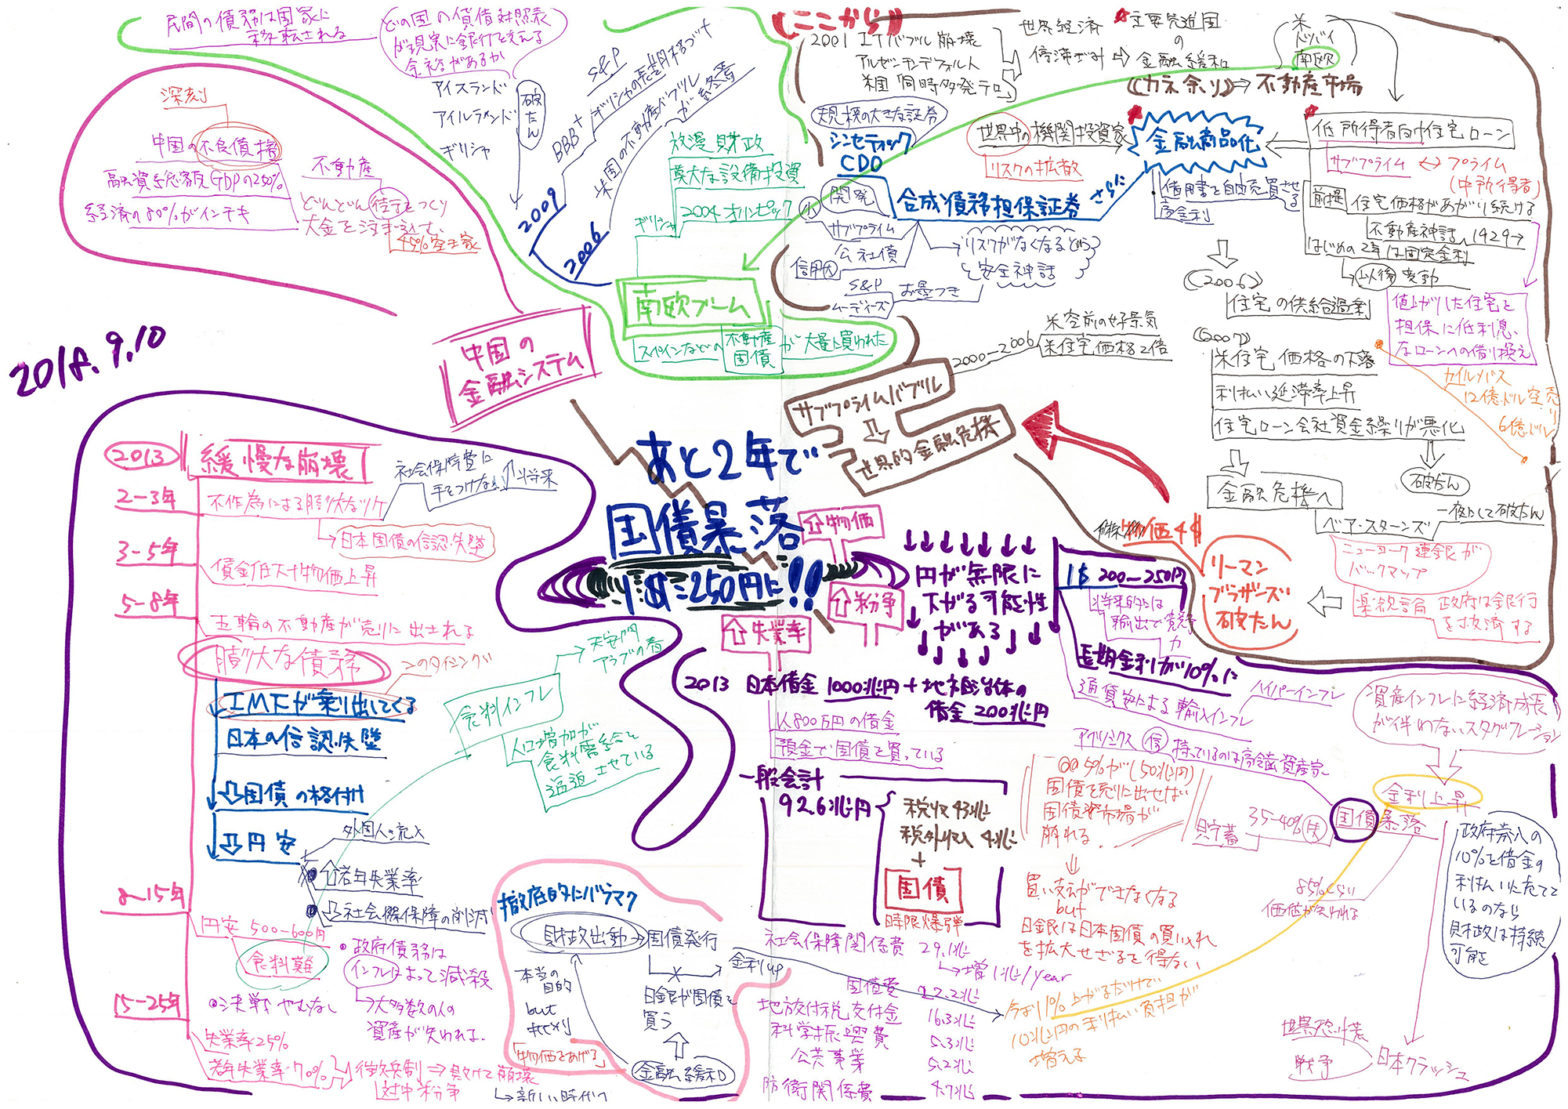 民間の債務は国家に
移転される
どの国の貸借対照表
が現実に
余裕があるか
アイスランド
アイルランド
ギリシャ
破たん
深刻
中国の不良債権
融資総額GDPの250%
経済の50%がインチキ
不動産
どんどん住宅をつくり
大金を
45%空き家
中国の
金融システム
2009
2006
BBB+
S&P
米国の不動産バブル
が終焉
放漫財政
莫大な設備投資
2004オリンピック
ギリシャ
南欧ブーム
スペインなどの不動産
国債
が大量に買われた
(ここから)
2001 ITバブル崩壊
アルゼンチンデフォルト
米国同時多発テロ
世界経済
主要先進国
の
金融緩和
(カネ余り)⇒不動産市場
米
ドバイ
南欧
規模の大きな証券
シンセティック
CDO
合成債務担保証券
さらに
世界中の機関投資家
リスクの拡散
金融商品化
借用書を自由売買させる
高金利
低所得者向け住宅ローン
サブプライム ↔ プライム
(中所得者)
前提
住宅価格があがり続ける
不動産神話 1929→
はじめの2年は固定金利
以後変動
値上がりした住宅を
担保に低利息
なローンへの借り換え
開発
サブプライム
公社債
信用大
S&P
ムーディーズ
お墨つき
リスクがなくなるどう
と安全神話
(2006)
住宅の供給過剰
(2007)
米住宅価格の下落
利払い延滞率上昇
住宅ローン会社資金繰りが悪化
破たん
金融危機へ
ベアースターンズ
ニューヨーク連銀が
バックアップ
カイルバス
12億ドル空売り
6億ドル
2000-2006
米空前の好景気
米住宅価格2倍
サブプライムバブル
世界的金融危機
リーマン
ブラザーズ
破たん
政府は銀行
を救済する
2018.9.10
あと2年で
国債暴落
1$=250円に!!
⇧物価
⇧紛争
⇧失業率
円が無限に
下がる可能性
がある
1$ 200-250円
将来的には
輸出で競争
力
長期金利が10%に
通貨安による輸入インフレ
ハイパーインフレ
2013
緩慢な崩壊
2-3年
不作為による膨大なツケ
社会保障費に
手をつけない
将来
日本国債の信認失墜
3-5年
賃金低下 物価上昇
5-8年
五輪の不動産が売りに出される
膨大な債務
このタイミング
IMFが乗り出してくる
日本の信認失墜
⇩国債の格付け
⇩円安
外国人の流入
⇧若年失業率
⇩社会保障の削減
8-15年
円安 500-600円
食料難
15-25年
失業率25%
若年失業率70%
徴兵制
対中紛争
⇒敗けて崩壊
新しい時代へ
政府債務は
インフレによって減殺
大多数の人の
資産が失われる.
食料インフレ
天安門
アラブの春
人口増加が
食料需給を
逼迫させている
2013 日本借金1000兆円+地方自治体の
借金200兆円
1人800万円の借金
預金で国債を買っている
一般会計
92.6兆円
税収43兆
税外収入4兆
+
国債
時限爆弾
社会保障関係費 29.1兆
増1兆/year
国債費 22.2兆
地方交付税交付金 16.3兆
科学振興費 5.3兆
公共事業 5.2兆
防衛関係費 4.7兆
徹底的にバラマク
財政出動→国債発行
金利up
本当の
目的
but
日銀が国債を
買う
物価をあげる
金融緩和
5%が(50兆円)
国債を売りに出せば
国債資市場が
崩れる.
買い支えができなくなる
but
日銀は日本国債の買い入れ
を拡大せざるを得ない
持っているのは高齢資産家
貯蓄
35-40%
国債暴落
金利上昇
資産インフレに経済成長
が伴わないスタグフレーション
85%くらい
価値が失われる
政府歳入の
10%を借金の
利払いにあてて
いるのなら
財政は持続
可能
今より1%上がるだけで
10兆円の利払い負担が
増える
世界恐慌
戦争
日本クラッシュ